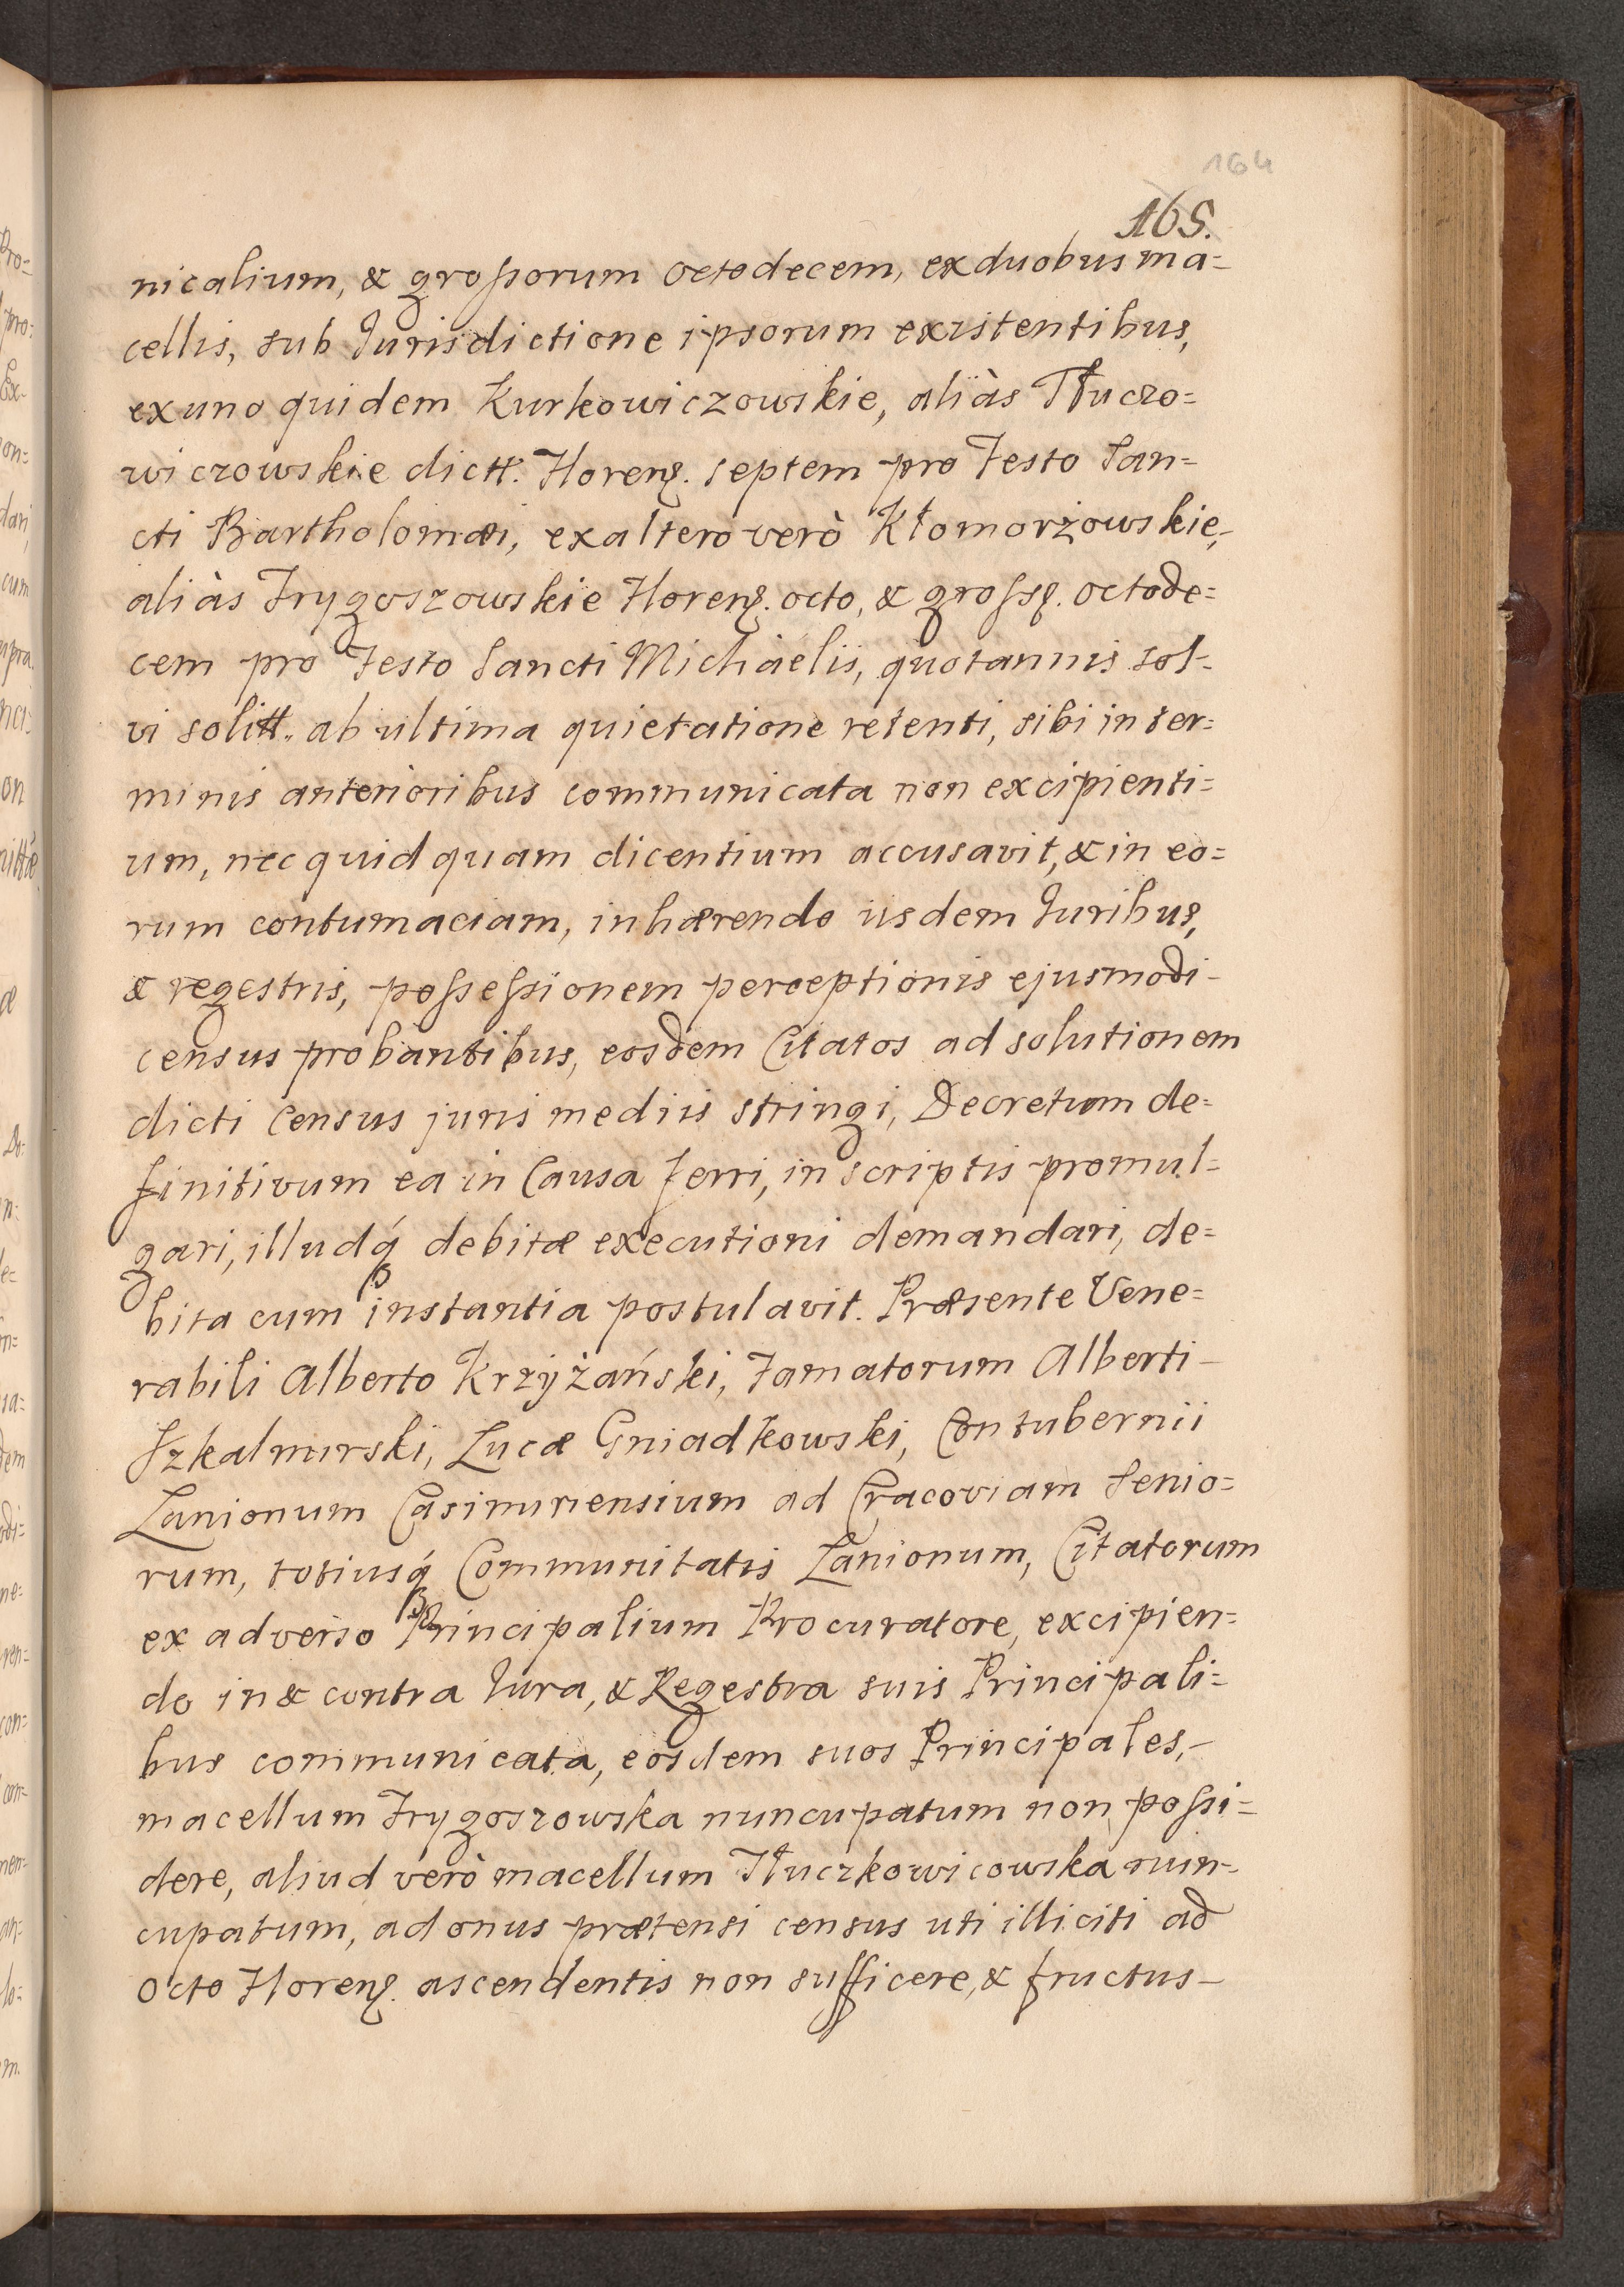 164
165.
nicalium, & grossorum octodecem, ex duobus ma=
cellis, sub Jurisdictione ipsorum existentibus,
ex uno quidem Kurkowiczowskie, aliàs Tłuczo=
wiczowskie dictt. Floren. septem pro Festo San=
cti Bartholomæi, ex altero verò Kłomorżowskie,-
aliàs Frygoszowskie Floren. octo, & gross. octode=
cem pro Festo Sancti Michäelis, quotannis sol=
vi solitt. ab ultima quietatione retenti, sibi in ter=
minis anterioribus communicata non excipienti=
um, nec quidquam dicentium accusavit, & in eo=
rum contumaciam, inhærendo iisdem Juribus,
& regestris, possessionem perceptionis ejusmodi-
census probantibus, eosdem Citatos ad solutionem
dicti Census juris mediis stringi, Decretum de=
finitivum ea in Causa ferri, in scriptis promul=
gari, illudq́ debitæ executioni demandari, de=
bita cum instantia postulavit. Præsente Vene=
rabili Alberto Krzyżański, Famatorum Alberti-
Szkalmirski, Lucæ Gniadkowski, Contubernii
Lanionum Casimiriensium ad Cracoviam Senio=
rum, totiusq́ Communitatis Lanionum, Citatorum
ex adverso Principalium Procuratore, excipien=
do in & contra Jura, & Regestra suis Principali=
bus communicata, eosdem suos Principales,-
macellum Frygoszowska nuncupatum non possi=
dere, aliud verò macellum Tłuczkowicowska nun-
cupatum, ad onus prætensi census uti illiciti ad
octo Floren. ascendentis non sufficere, & fructus-